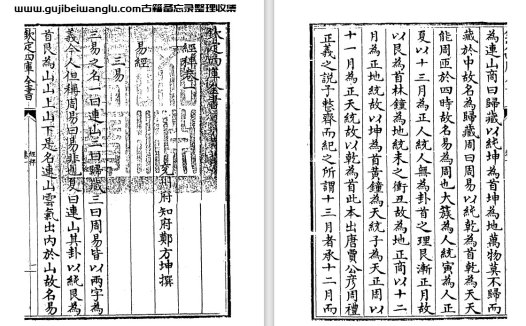 www.gujibeiwanglu.com古籍备忘录整理收集
欽定四庫全書
經稗卷一
州府知府鄭方坤撰
易經
三易
三易之名一曰連山二曰歸藏三曰周易皆以兩字為
義今人但稱周易曰易非也夏曰連山其卦以純艮為
首艮為山山上山下是名連山雲氣出内於山故名易
欽定四庫全書
經稗
為連山商曰歸藏以純坤為首坤為地萬物莫不歸而
藏於中故名為歸藏周曰周易以純乾為首乾為天天
能周匝於四時故名易為周也大蔟為人統寅為人正
夏以十三月為正人統人無為卦首之理艮漸正月故
以艮為首林鐘為地統未之衝丑故為地正商以十二
月為正地統故以坤為首黃鐘為天統子為天正周以
十一月為正天統故以乾為首此本出唐賈公彥周禮
正義之說予整齊而紀之所謂十三月者承十二月而